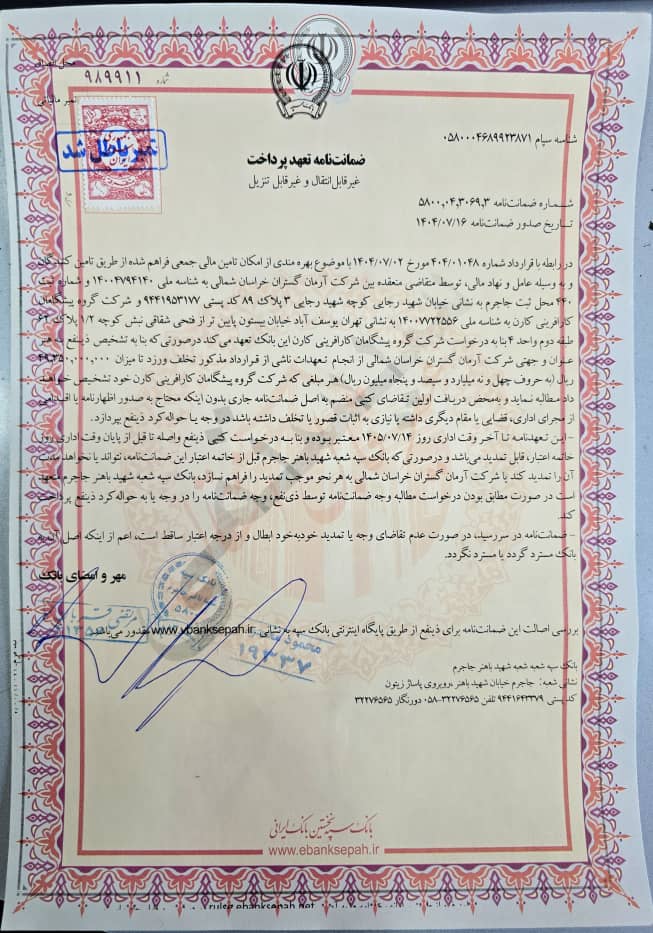 محل الصاق
شماره ۹۸۹۹۱۱
تمبر مالیاتی
تمبر باطل شد
شناسه سپام ۰۵۸۰۰۰۴۶۸۹۹۲۳۸۷۱
ضمانت‌نامه تعهد پرداخت
غیرقابل انتقال و غیرقابل تنزیل
شماره ضمانت‌نامه ۵۸۰۰,۰۴,۳۰۶۹,۳
تاریخ صدور ضمانت‌نامه ۱۴۰۴/۰۷/۱۶
در رابطه با قرارداد شماره ۴۰۴/۰۱۰۴۸ مورخ ۱۴۰۴/۰۷/۰۲ با موضوع بهره مندی از امکان تامین مالی جمعی فراهم شده از طریق تامین کنندگان
و به وسیله عامل و نهاد مالی، توسط متقاضی منعقده بین شرکت آرمان گستران خراسان شمالی به شناسه ملی ۱۴۰۰۴۷۹۴۱۴۰ و شماره ثبت
۴۴۰ محل ثبت جاجرم به نشانی خیابان شهید رجایی کوچه شهید رجایی ۳ پلاک ۸۹ کد پستی ۹۴۴۱۹۵۳۱۷۷ و شرکت گروه پیشگامان
کارآفرینی کارن به شناسه ملی ۱۴۰۰۷۷۲۲۵۵۶ به نشانی تهران یوسف آباد خیابان بیستون پایین تر از فتحی شقاقی نبش کوچه ۱/۲ پلاک ۶۲
طبقه دوم واحد ۴ بنا به درخواست شرکت گروه پیشگامان کارآفرینی کارن این بانک تعهد می کند درصورتی که بنا به تشخیص ذینفع به هر
عنوان و جهتی شرکت آرمان گستران خراسان شمالی از انجام تعهدات ناشی از قرارداد مذکور تخلف ورزد تا میزان ۴۹,۳۵۰,۰۰۰,۰۰۰
ریال (به حروف چهل و نه میلیارد و سیصد و پنجاه میلیون ریال) هر مبلغی که شرکت گروه پیشگامان کارآفرینی کارن خود تشخیص خواهد
داد مطالبه نماید و به‌محض دریافت اولین تقاضای کتبی منضم به اصل ضمانت‌نامه جاری بدون اینکه محتاج به صدور اظهارنامه یا اقدامی
از مجرای اداری، قضایی یا مقام دیگری داشته یا نیازی به اثبات قصور یا تخلف داشته باشد در وجه یا حواله‌کرد ذینفع بپردازد.
- این تعهدنامه تا آخر وقت اداری روز ۱۴۰۵/۰۷/۱۴ معتبر بوده و بنا به درخواست کتبی ذینفع واصله تا قبل از پایان وقت اداری روز
خاتمه اعتبار، قابل تمدید می‌باشد و درصورتی که بانک سپه شعبه شهید باهنر جاجرم قبل از خاتمه اعتبار این ضمانت‌نامه، نتواند یا نخواهد مدت
آن را تمدید کند یا شرکت آرمان گستران خراسان شمالی به هر نحو موجب تمدید را فراهم نسازد، بانک سپه شعبه شهید باهنر جاجرم متعهد
است در صورت مطابق بودن درخواست مطالبه وجه ضمانت‌نامه توسط ذی‌نفع، وجه ضمانت‌نامه را در وجه یا به حواله‌کرد ذینفع پرداخت
کند.
- ضمانت‌نامه در سررسید، در صورت عدم تقاضای وجه یا تمدید خودبه‌خود ابطال و از درجه اعتبار ساقط است، اعم از اینکه اصل آن به
بانک مسترد گردد یا مسترد نگردد.
مهر و امضای بانک
بررسی اصالت این ضمانت‌نامه برای ذینفع از طریق پایگاه اینترنتی بانک سپه به نشانی www.ebanksepah.ir مقدور می‌باشد.
۱۹۳۳۷
بانک سپه شعبه شعبه شهید باهنر جاجرم
نشانی شعبه: جاجرم خیابان شهید باهنر ،روبروی پاساژ زیتون
کدپستی ۹۴۴۱۶۴۳۳۷۹ تلفن ۳۲۲۷۶۵۶۵-۰۵۸ دورنگار ۳۲۲۷۶۵۶۵
بانک سپه نخستین بانک ایرانی
www.ebanksepah.ir